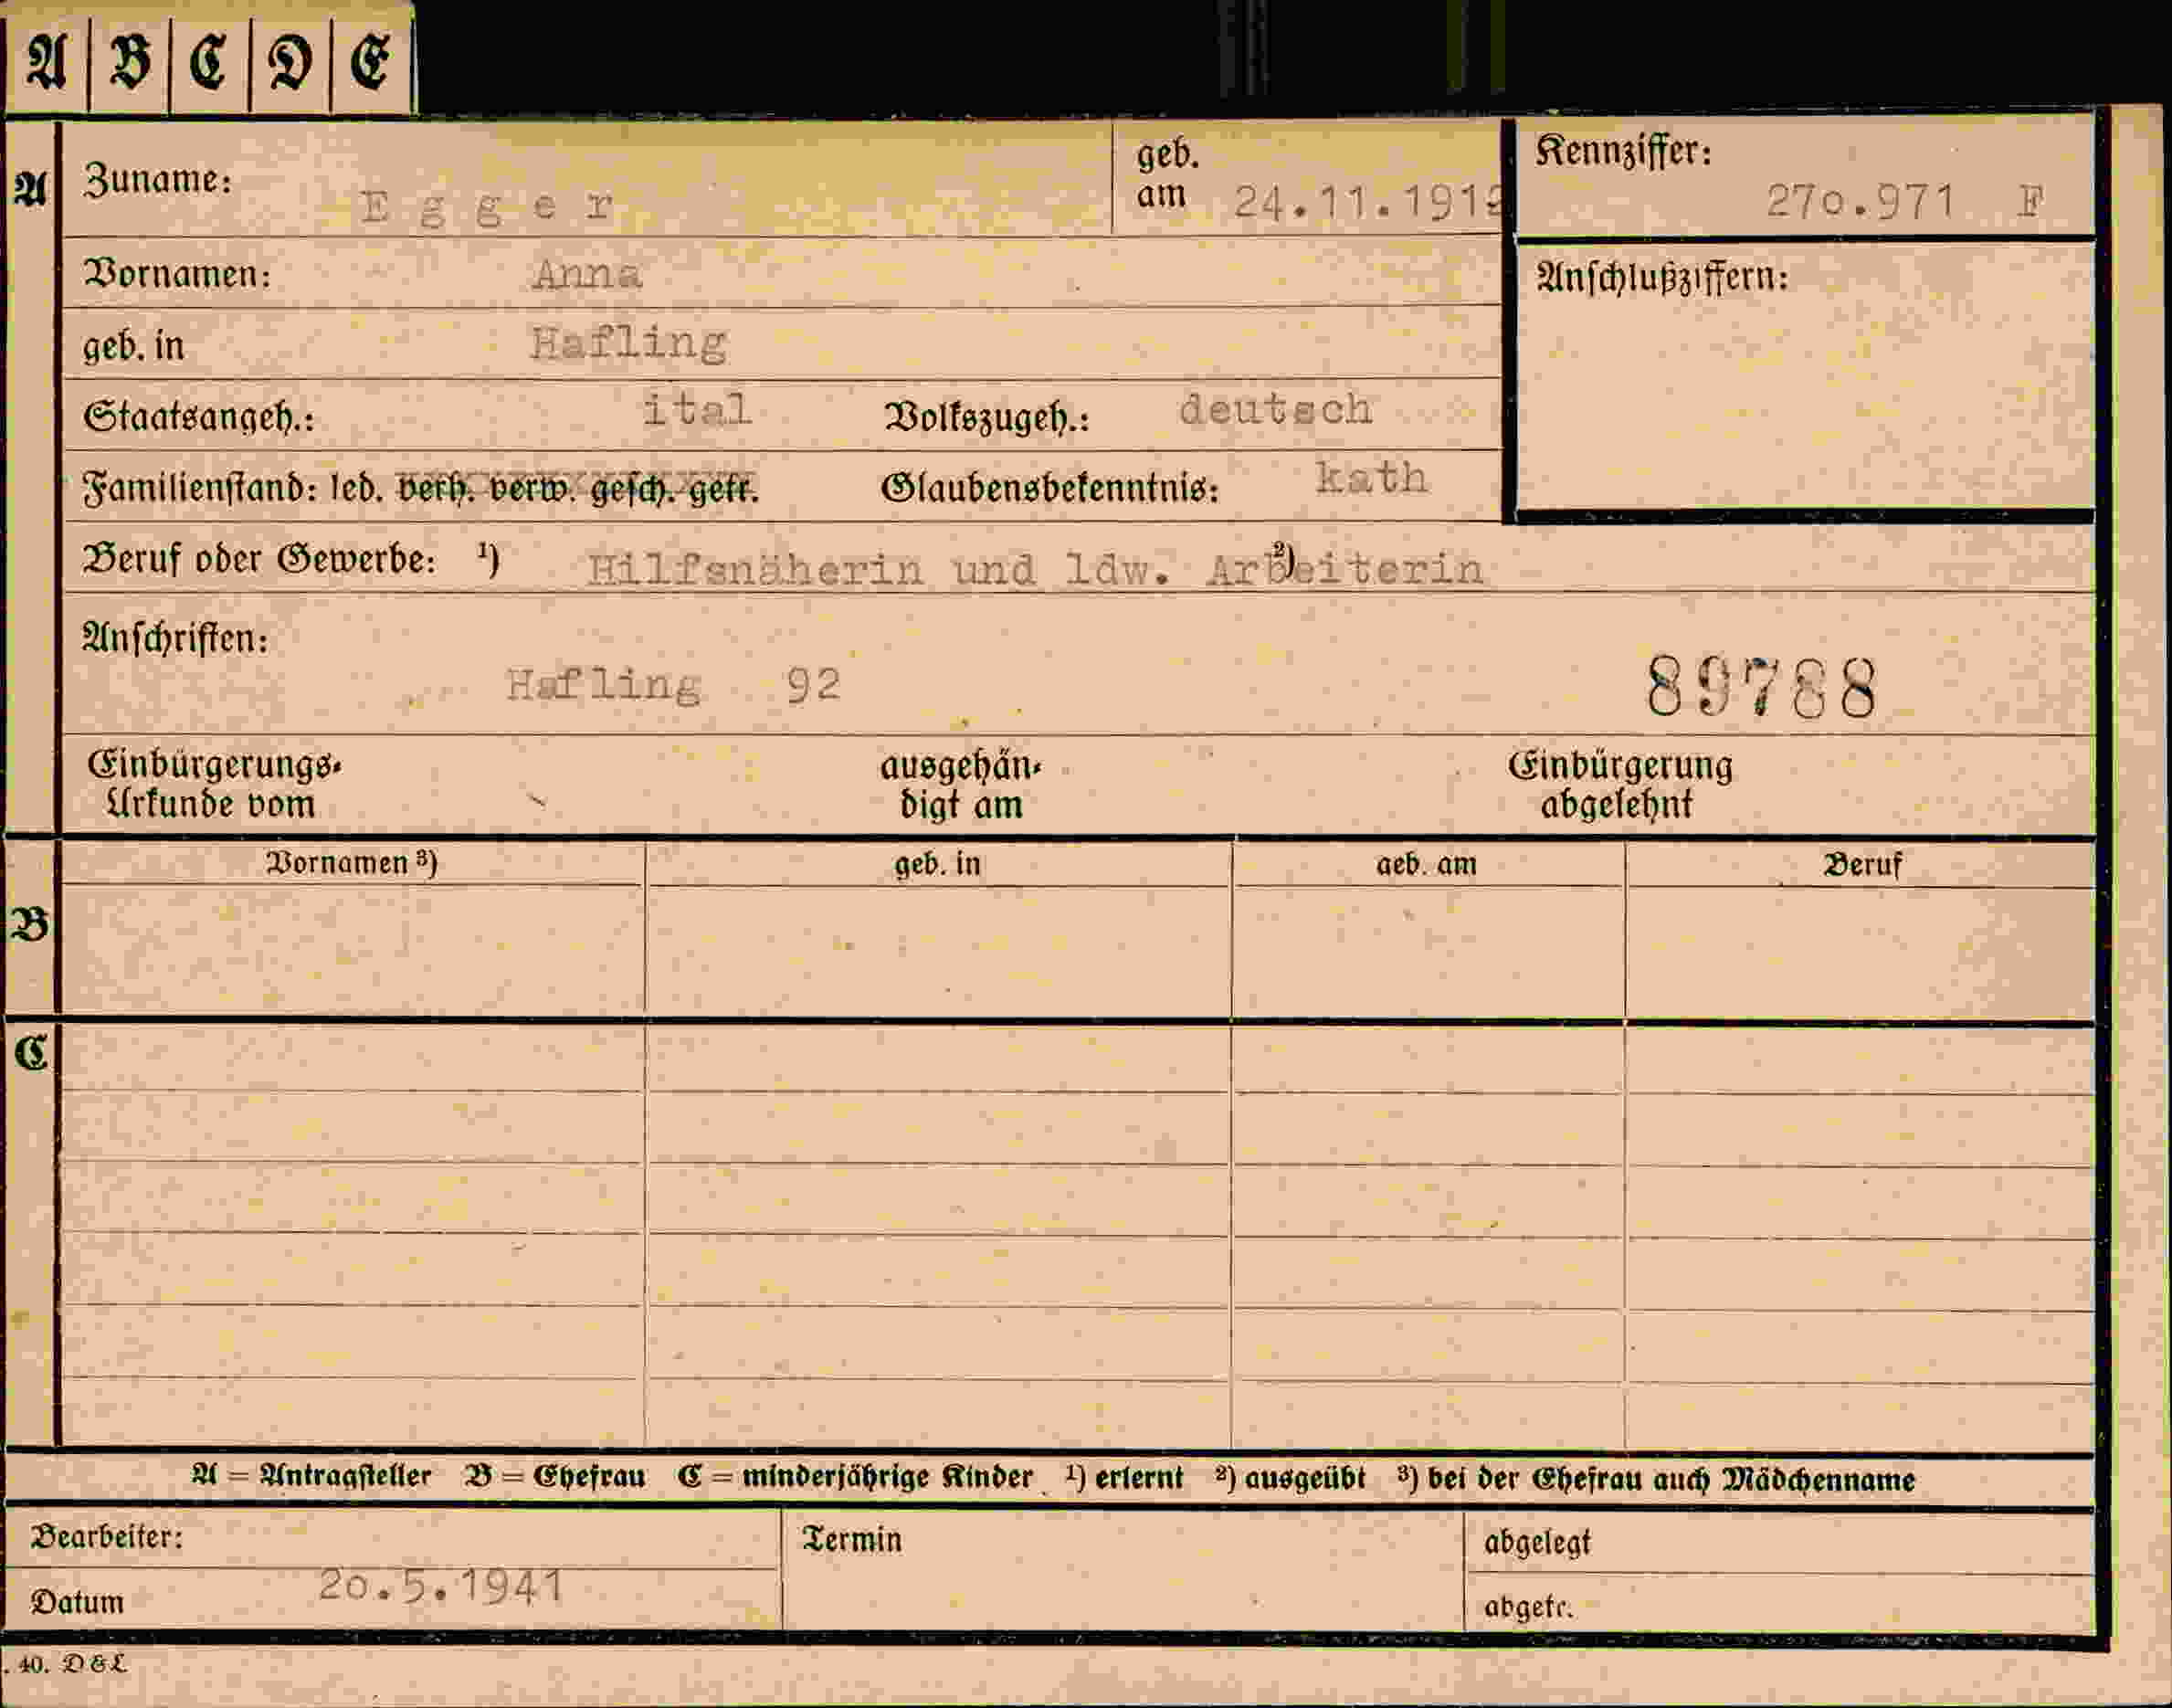 A B C D E
A Zuname: Egger geb. am 24.11.1912 Kennziffer: 27o.971 F
Vornamen: Anna Anschlußziffern:
geb. in Hafling
Staatsangeh.: ital Volkszugeh.: deutsch
Familienstand: led. verh. verw. gesch. getr. Glaubensbekenntnis: kath
Beruf oder Gewerbe: ¹) Hilfsnäherin und ldw. Arbeiterin ²)
Anschriften:
Hafling 92 89788
Einbürgerungs- ausgehän- Einbürgerung
Urkunde vom digt am abgelehnt
Vornamen ³) geb. in geb. am Beruf
B
C
A = Antragsteller B = Ehefrau C = minderjährige Kinder ¹) erlernt ²) ausgeübt ³) bei der Ehefrau auch Mädchenname
Bearbeiter: Termin abgelegt
Datum 2o.5.1941 abgetr.
. 40. D & L